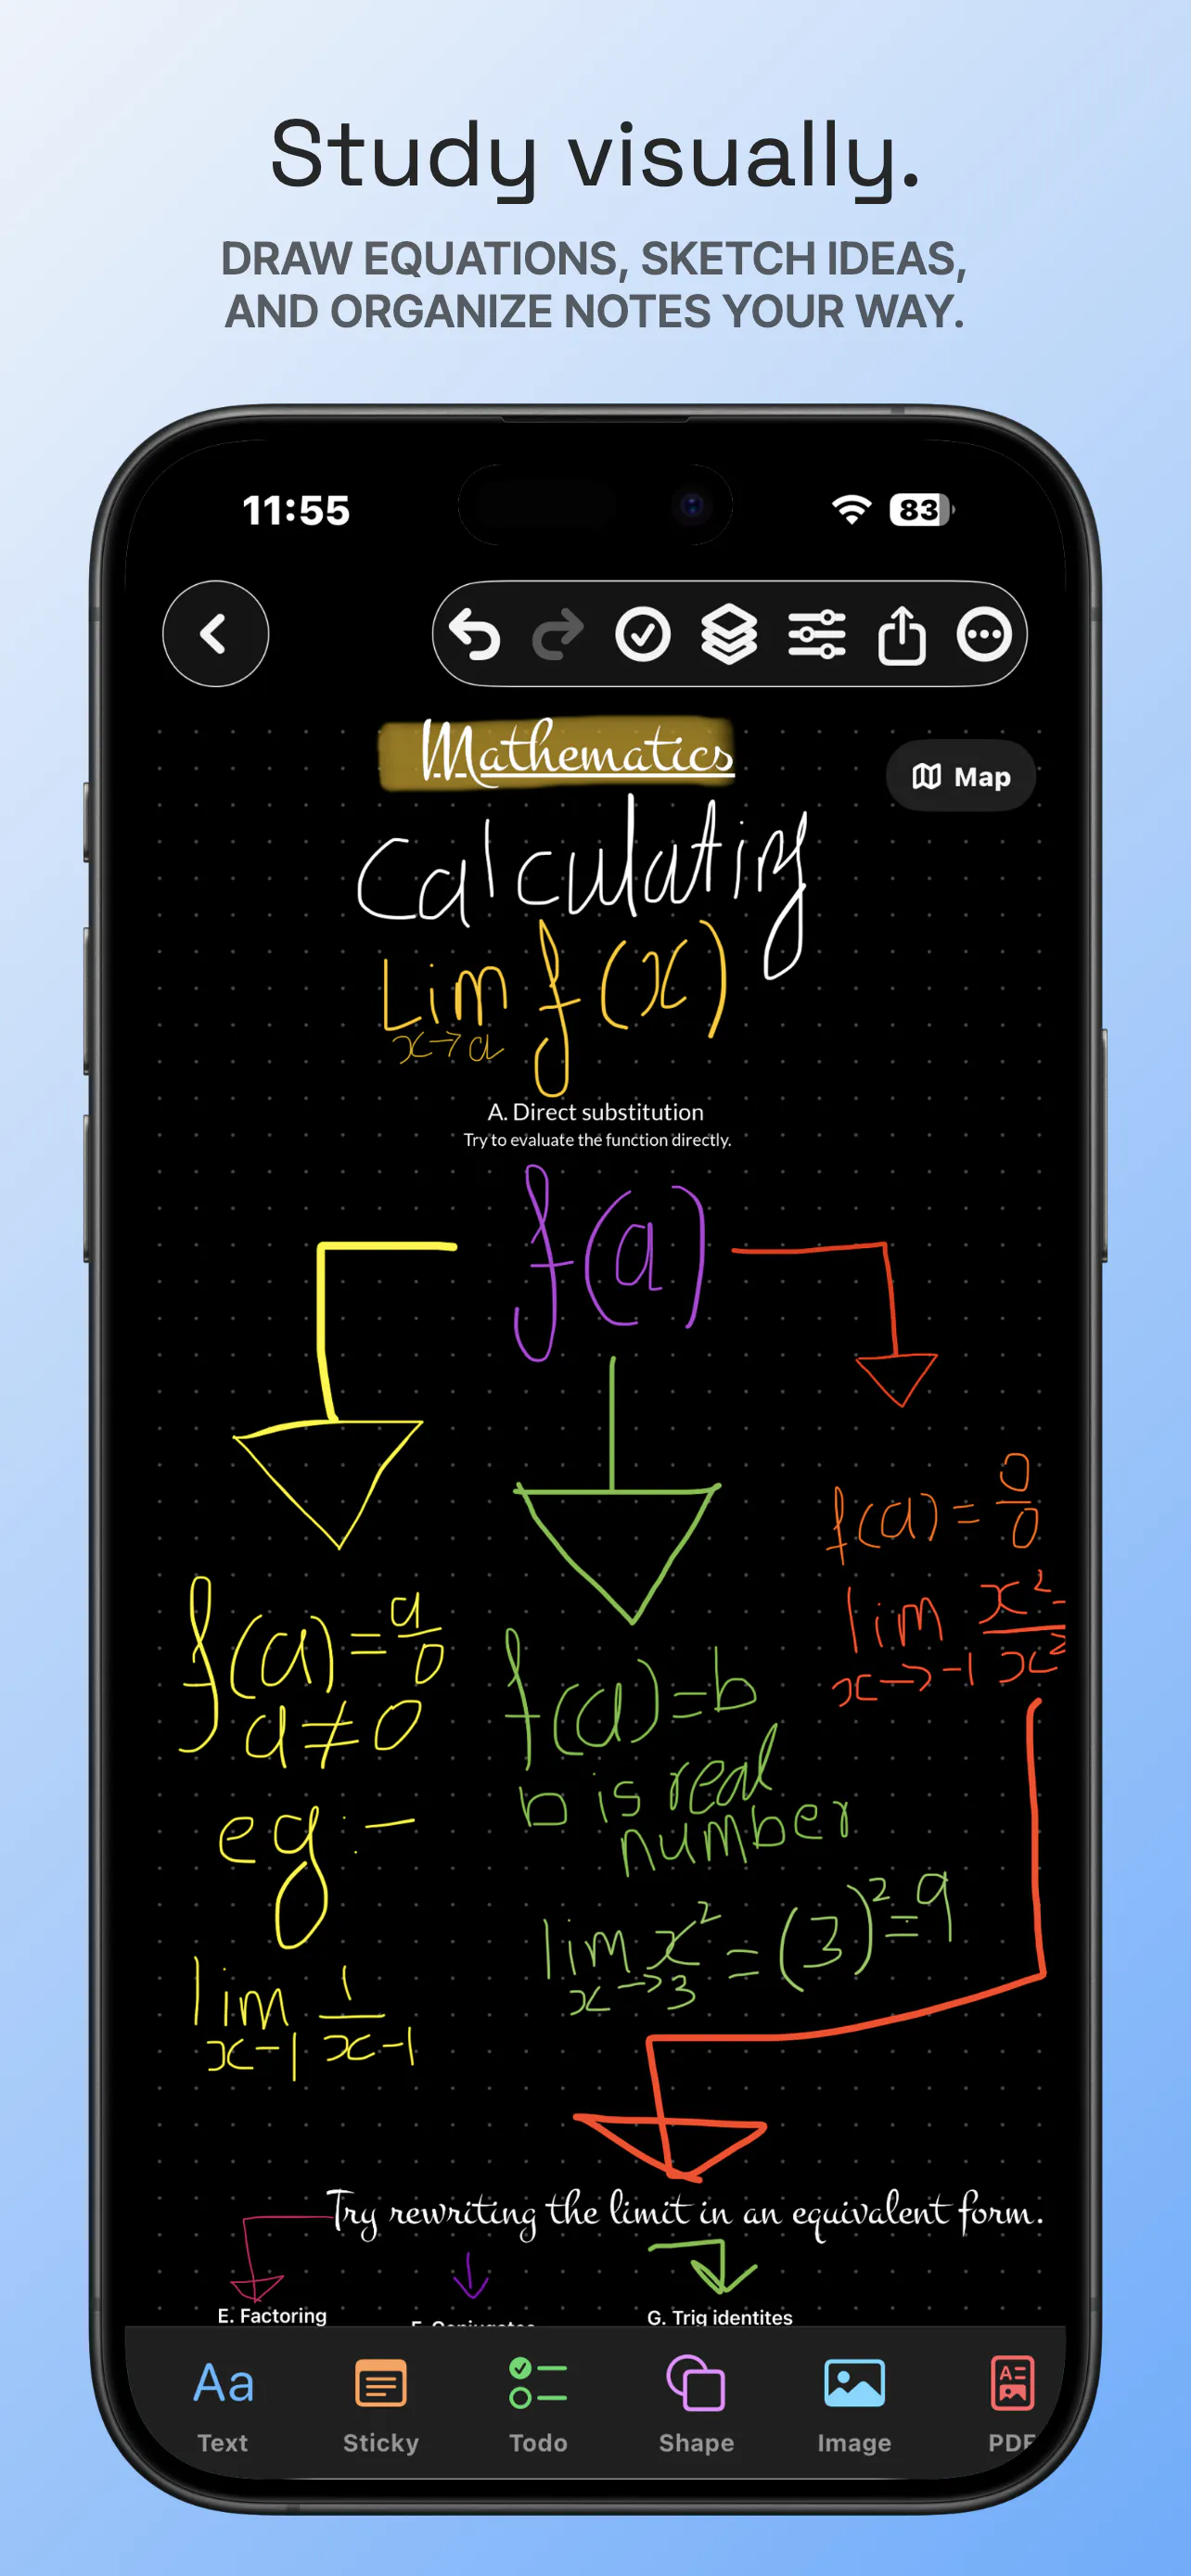 Study visually.
DRAW EQUATIONS, SKETCH IDEAS,
AND ORGANIZE NOTES YOUR WAY.
11:55
83
Mathematics
Map
Calculating
Lim f(x)
x→a
A. Direct substitution
Try to evaluate the function directly.
f(a)
f(a) = a/0
a ≠ 0
eg :-
lim 1/x-1
x-1
f(a) = b
b is real
number
lim x² = (3)² = 9
x→3
f(a) = 0/0
lim x²-/x²
x→-1
Try rewriting the limit in an equivalent form.
E. Factoring
F. Conjugates
G. Trig identites
Text
Sticky
Todo
Shape
Image
PDF